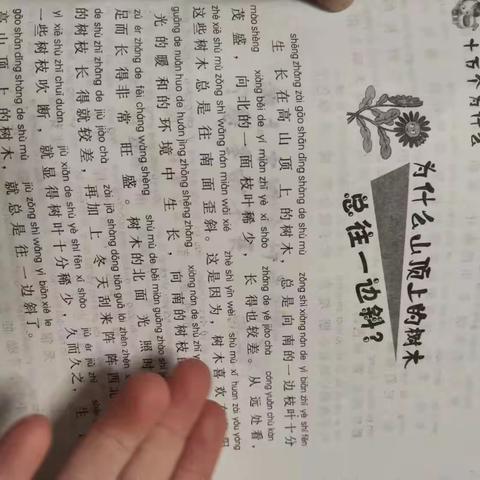 十万个为什么
为什么山顶上的树木
总往一边斜?
shēng zhǎng zài gāo shān dǐng shàng de shù mù zǒng shì xiàng nán de yì biān zhī yè shí fēn
生长在高山顶上的树木,总是向南的一边枝叶十分
mào shèng xiàng běi de yí miàn zhī yè xī shǎo zhǎng de yě jiào chà cóng yuǎn chù kàn
茂盛,向北的一面枝叶稀少,长得也较差。从远处看,
zhè xiē shù mù zǒng shì wǎng nán miàn wāi xié zhè shì yīn wèi shù mù xǐ huan zài yáng
这些树木总是往南面歪斜。这是因为,树木喜欢
guāng de nuǎn huo de huán jìng zhōng shēng zhǎng xiàng nán de shù zhī
光的暖和的环境中生长,向南的树枝
zú ér zhǎng de fēi cháng wàng shèng shù mù de běi miàn guāng zhào shí
足而长得非常旺盛。树木的北面光照时
de shù zhī zhǎng de jiù jiào chà zài jiā shàng dōng tiān guā lái zhèn zhèn
的树枝长得就较差,再加上冬天刮来阵阵西北
yì xiē shù zhī chuī duàn jiù xiǎn de shù yè shí fēn xī shǎo jiǔ ér jiǔ zhī
一些树枝吹断,就显得树叶十分稀少,久而久之,生
gāo shān dǐng shàng de shù mù jiù zǒng shì wǎng yì biān xié le
高山顶上的树木,就总是往一边斜了。